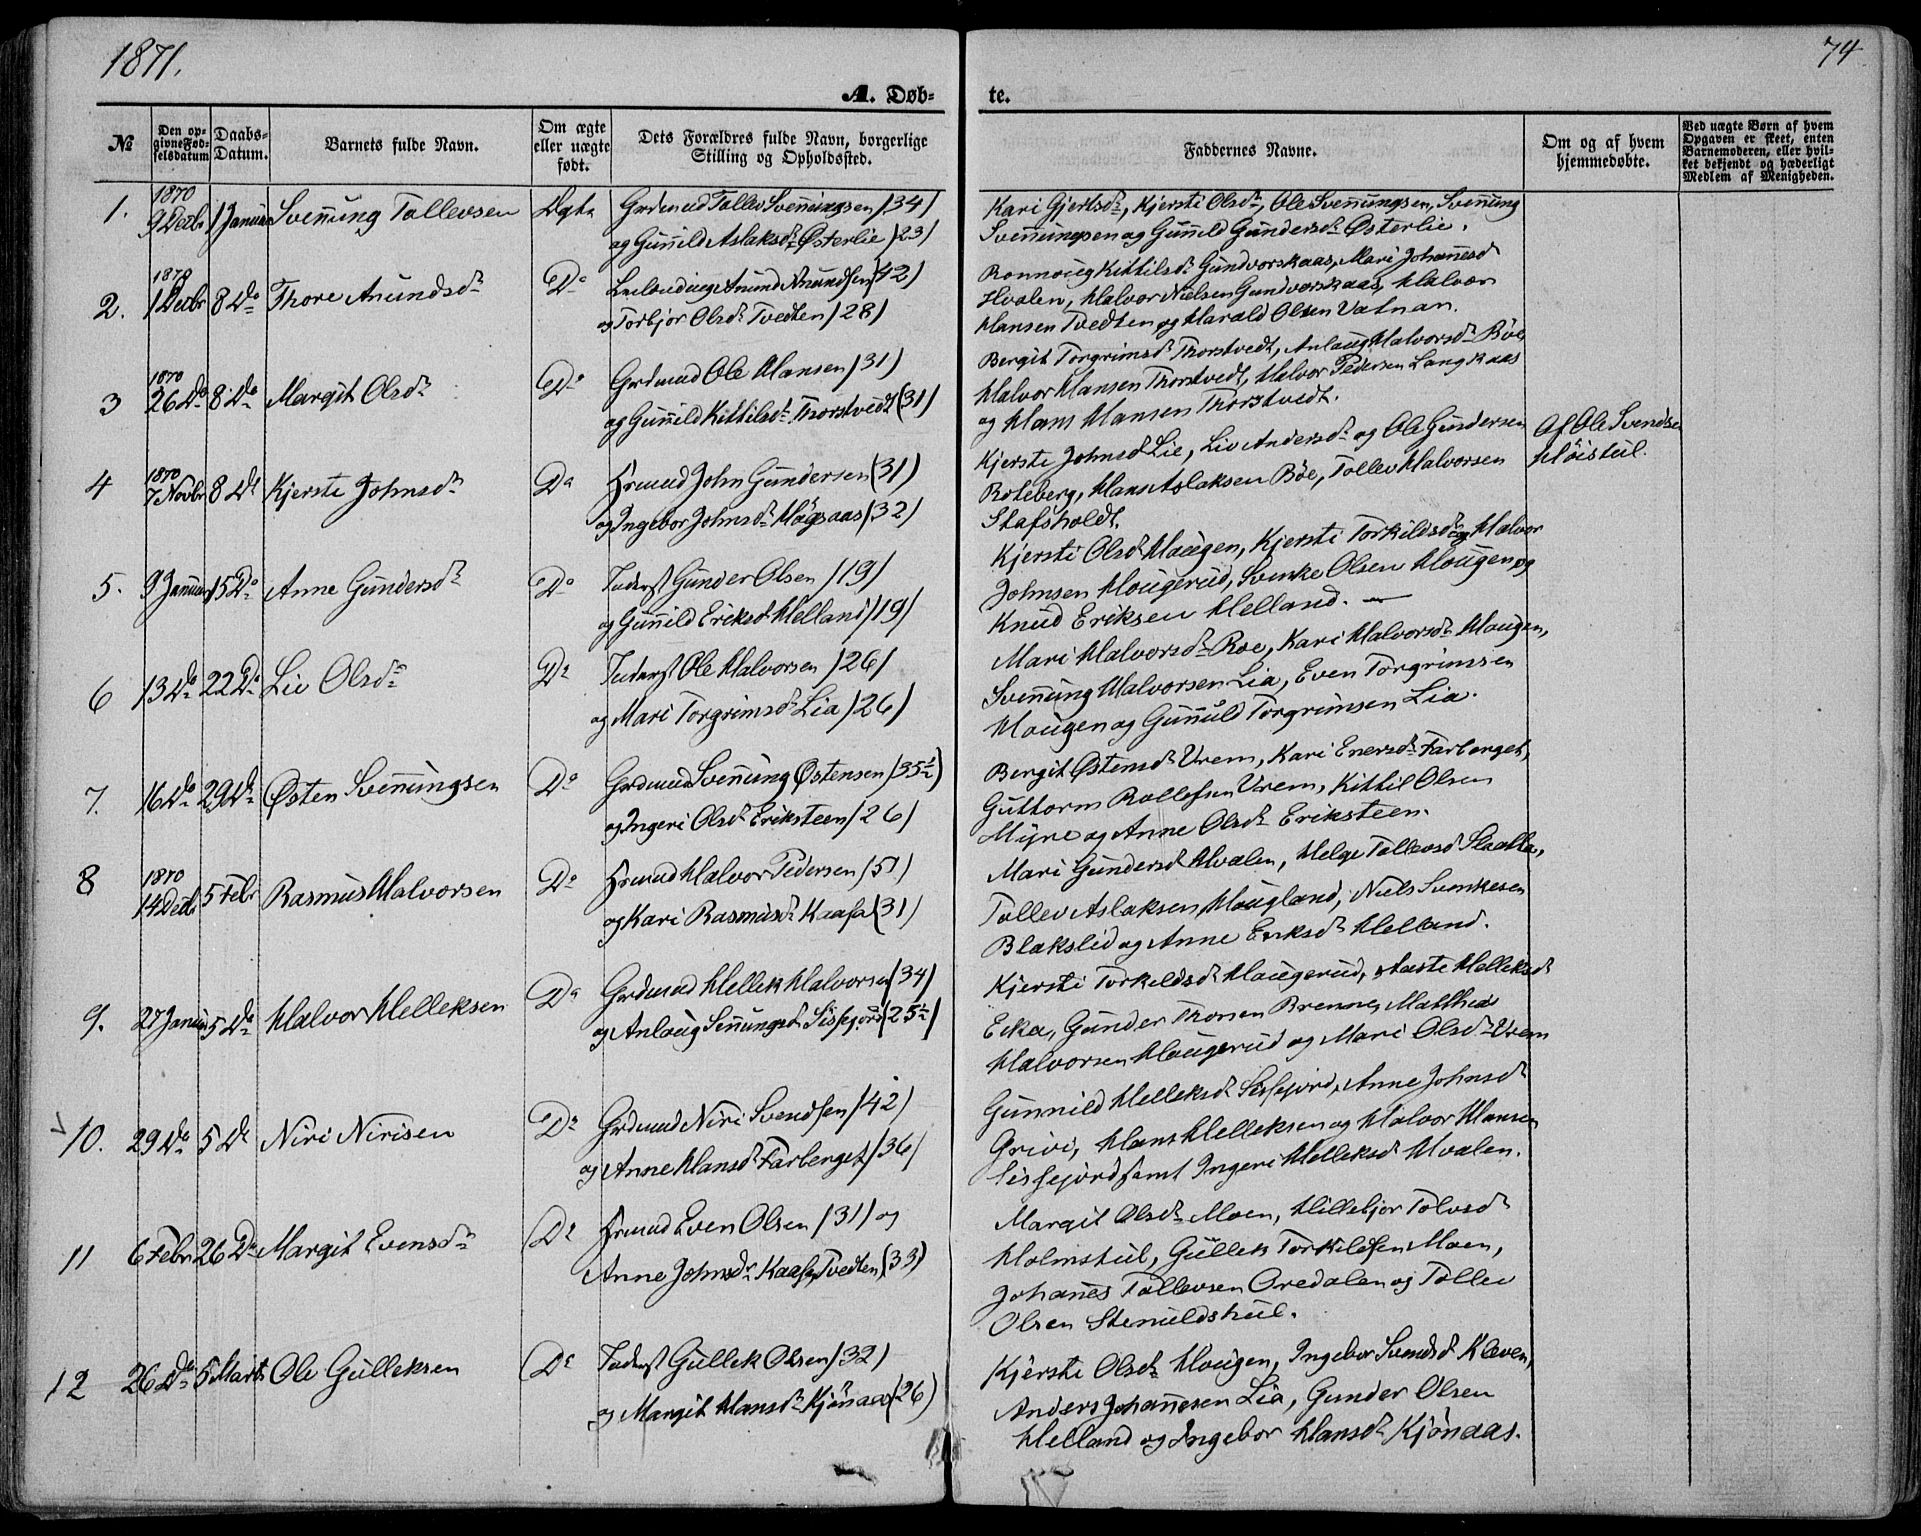 1871.
74
A. Døb-
te.
№
Den op-
givne Fød-
selsdatum
Daabs-
Datum.
Barnets fulde Navn.
Om ægte
eller uægte
født.
Dets Forældres fulde Navn, borgerlige
Stilling og Opholdssted.
Faddernes Navne.
Om og af hvem
hjemmedøbte.
Ved uægte Børn af hvem
Opgaven er skeet, enten
Barnemoderen, eller hvil-
ket bekjendt og hæderligt
Medlem af Menigheden.
1. 1870 9 Decbr 1 Januar Svennung Tollevsen Ægte Grdmnd Tollev Svennungsen (34)
og Gunnild Aslaksdr Østerlie (23)
Kari Gjertsdr, Kjersti Olsdr, Ole Svennungsen, Svennung
Svennungsen og Gunnild Gundersdr Østerlie.
2. 1870 1 Decbr 8 Do Thore Anundsdr Do Anund Anundsen (42)
og Torbjør Olsdr Tvedten (28)
Ronnoug Kittilsdr Gundvorskaas, Mari Johannesd
Hvalen, Halvor Nielsen Gundvorskaas, Halvor
Hansen Tvedten og Harald Olsen Vatnan.
3 1870 26 Do 8 Do Margit Olsdr Do Grdmnd Ole Hansen (31)
og Gunnild Kittilsdr Thorstvedt (31)
Bergit Torgrimsd Thorstvedt, Anlaug Halvorsdr Böe,
Halvor Hansen Thorstvedt, Halvor Pedersen Langkaas
og Hans Hansen Thorstvedt.
4 1870 7 Novbr 8 Do Kjersti Johnsdr Do Hrmnd John Gundersen (31)
og Ingebor Johnsdr Högsaas (32)
Kjersti Johnsd Lie, Liv Andersdr og Ole Gundersen
Roteberg, Hans Aslaksen Böe, Tollev Halvorsen
Stafsholdt.
Af Ole Svendsen
Höistul.
5. 9 Januar 15 Do Anne Gundersdr Do Inderst Gunder Olsen (19)
og Gunnild Eriksd Helland (19)
Kjersti Olsd Haugen, Kjersti Torkildsdr og Halvor
Johnsen Hougerud, Svenke Olsen Hougen og
Knud Eriksen Helland.
6 13 Do 22 Do Liv Olsdr Do Inderst Ole Halvorsen (26)
og Mari Torgrimsdr Lia (26)
Mari Halvorsdr Roe, Kari Halvorsdr Haugen,
Svennung Halvorsen Lia, Even Torgrimsen
Haugen og Gunnuld Torgrimsen Lia.
7. 16 Do 29 Do Østen Svennungsen Do Grdmnd Svennung Østensen (35½)
og Ingeri Olsdr Eriksteen (26)
Bergit Østensdr Vrem, Kari Enersdr Farberget,
Guttorm Rollefsen Vrem, Kittil Olsen
Myre og Anne Olsdr Eriksteen.
8 1870 14 Decbr 5 Febr Rasmus Halvorsen Do Hrmnd Halvor Pedersen (51)
og Kari Rasmusdr Kaasa (31)
Mari Gundersd Hvalen, Helge Tollevsd
Tollev Aslaksen Hougland, Niels Svenkesen
Blakslid og Anne Eriksdr Helland.
9. 27 Januar 5 Do Halvor Helleksen Do Grdmnd Hellek Halvorsen (34)
og Anlaug Sennungsdr Sissejord (25½)
Kjersti Torkeldsdr Haugerud, Aaste Helleksd
Eika, Gunder Thorsen Brenne, Mathea
Halvorsen Hougerud og Mari Olsdr Vrem
10. 29 Do 5 Do Niri Nirisen Do Grdmnd Niri Svendsen (42)
og Anne Hansdr Farberget (36)
Gunnild Helleksdr Sissejord, Anne Johnsd
Grivi, Hans Helleksen og Halvor Hansen
Sissejord samt Ingeri Helleksd Hvalen.
11 6 Febr 26 Do Margit Evensdr Do Hrmnd Even Olsen (31) og
Anne Johnsdr Kaasa Tvedten (33)
Margit Olsdr Moen, Hillebjor Tolvsdr
Holmstul, Gullek Torkildsen Moen,
Johanes Tollevsen Oredalen og Tollev
Olsen Stenuldstul.
12 26 Do 5 Marts Ole Gulleksen Do Inderst Gullek Olsen (32)
og Margit Hansdr Kjönaas (26)
Kjersti Olsdr Hougen, Ingebor Svendsd Kleven,
Anders Johannesen Lia, Gunder Olsen
Helland og Ingebor Hansdr Kjönaas.